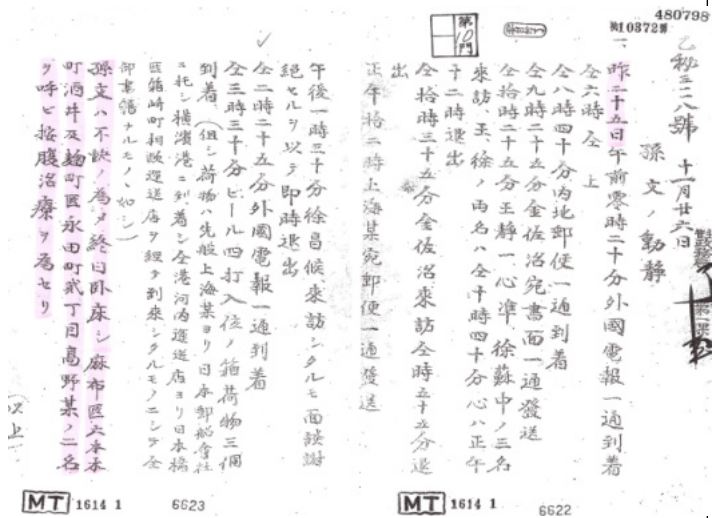 480798
第10372號
第10門
乙秘三二八號 十一月廿六日
孫文ノ動靜
一、昨二十五日午前零時二十分外國電報一通到着
仝六時仝上
仝八時四十分内地郵便一通到着
仝九時二十五分金佐治宛書面一通發送
仝拾時二十五分王靜一心準徐蘇中ノ三名
來訪、王、徐ノ両名ハ仝十時四十分心ハ正午
十二時退出
仝拾時三十五分金佐治來訪仝時五十五分退
出
正午拾二時上海某宛郵便一通發送
午後一時三十分徐昌候來訪シタルモ面談謝
絶セルヲ以テ即時退出
仝二時二十五分外國電報一通到着
仝三時三十分ビール四打入位ノ箱荷物三個
到着(但シ荷物ハ先般上海某ヨリ日本郵船會社
ニ托シ横濱港ニ到着シ仝港河内運送店ヨリ日本橋
區箱崎町相政運送店ヲ經テ到來シタルモノニシテ仝
御書籍ナルモノヽ如シ)
孫文ハ不快ノ為メ終日臥床シ麻布區六本木
町酒井及麹町區永田町貳丁目高野某ノ二名
ヲ呼ビ按腹治療ヲ為セリ
(以上)
MT 1614 1 6623
MT 1614 1 6622